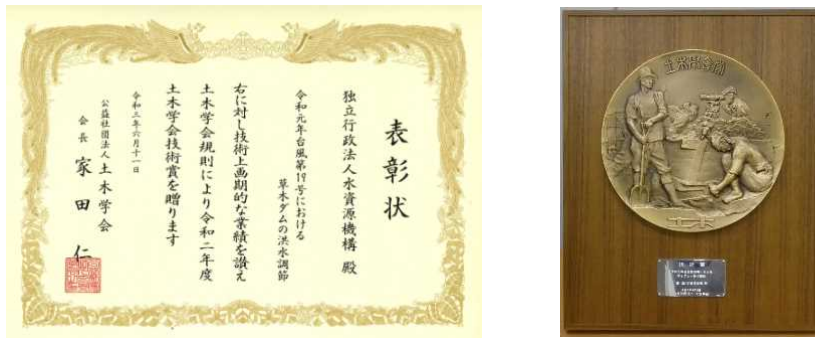 表彰状
独立行政法人水資源機構 殿
令和元年台風第19号における
草木ダムの洪水調節
右に対し技術上画期的な業績を讃え
土木学会規則により令和二年度
土木学会技術賞を贈ります
令和三年六月十一日
公益社団法人 土木学会
会長 家田 仁
土木學會制
土木
技術賞